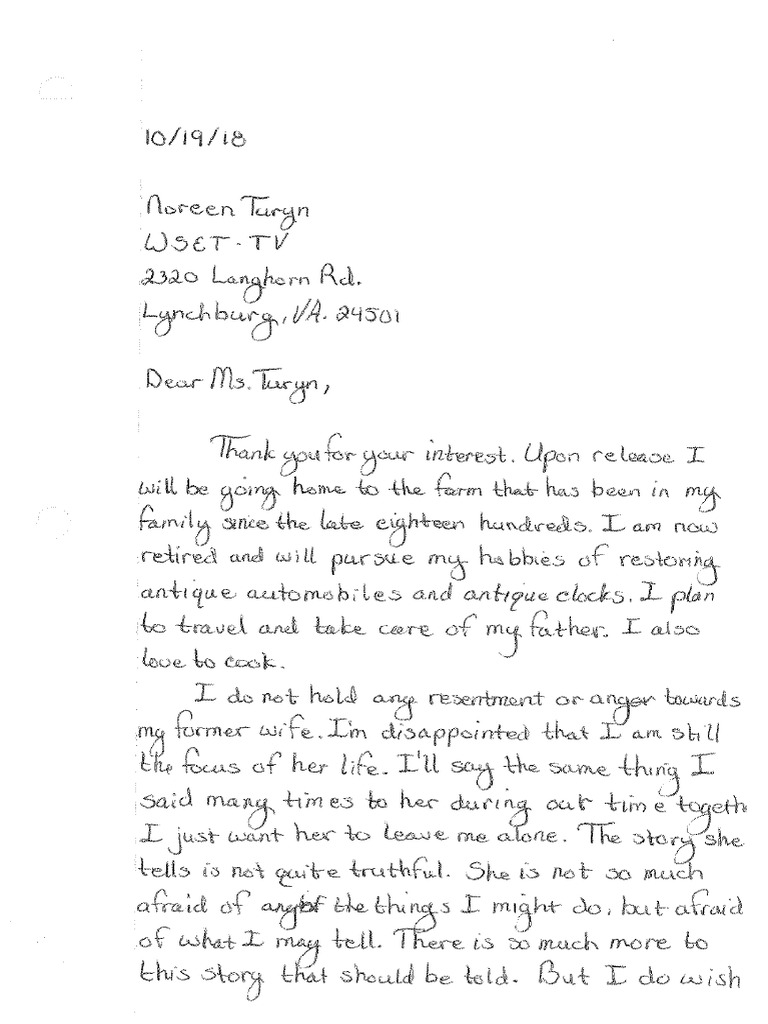 10/19/18
Noreen Turyn
WSET-TV
2320 Langhorn Rd.
Lynchburg, VA. 24501
Dear Ms. Turyn,
Thank you for your interest. Upon release I
will be going home to the farm that has been in my
family since the late eighteen hundreds. I am now
retired and will pursue my hobbies of restoring
antique automobiles and antique clocks. I plan
to travel and take care of my father. I also
love to cook.
I do not hold any resentment or anger towards
my former wife. I'm disappointed that I am still
the focus of her life. I'll say the same thing I
said many times to her during our time togeth
I just want her to leave me alone. The story she
tells is not quite truthful. She is not so much
afraid of any of the things I might do, but afraid
of what I may tell. There is so much more to
this story that should be told. But I do wish